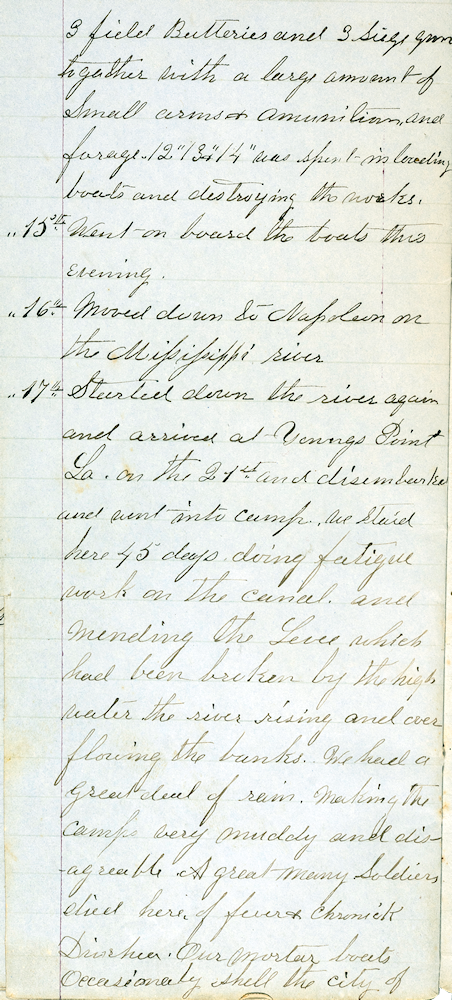 3 field Batteries and 3 Siege gun
together with a large amount of
Small arms & amunition, and
forage. 12" 13" & 14" was spent in loading
boats and destroying the works.
" 15th Went on board the boats this
evening.
" 16th Moved down to Napoleon on
the Mississippi river
" 17th Started down the river again
and arrived at Youngs Point
La. on the 21st and disembarked
and went into camp, we staid
here 45 days doing fatigue
work on the canal. and
mending the Levee which
had been broken by the high
water the river rising and over
flowing the banks. We had a
great deal of rain. Making the
camps very muddy and dis-
-agreable. A great many Soldiers
died here, of fever & Chronick
Diorhea. Our mortar boats
Occasionaly shell the city of